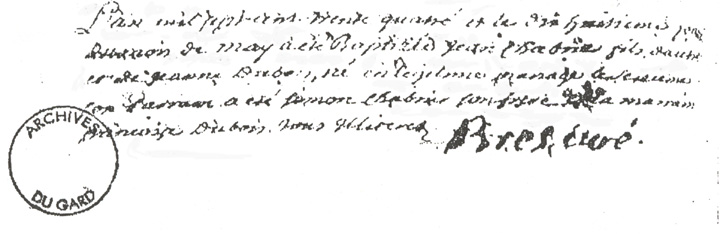 L'an mil sept cent trente quatre et le dix huitieme jour
du mois de may a été Baptisé Jean Chabrie fils d'autre
et de Jeanne Dubois, né en legitime mariage
son Parrain a été Simon Chabrie son frere la marrine
françoise Dubois. tous illiterez Bres, curé.
ARCHIVES
DU GARD